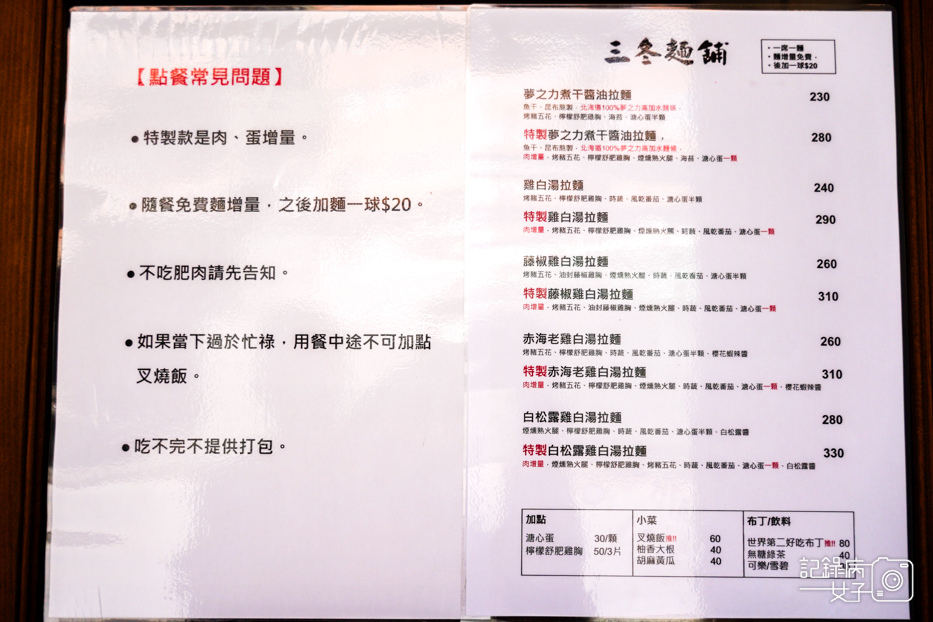 【點餐常見問題】
●特製款是肉、蛋增量。
●隨餐免費麵增量，之後加麵一球$20。
●不吃肥肉請先告知。
●如果當下過於忙祿，用餐中途不可加點
叉燒飯。
●吃不完不提供打包。
三冬麵舖
・一席一麵
・麵增量免費，
・後加一球$20
夢之力煮干醬油拉麵 230
魚干、昆布熬製，北海道100%夢之力高加水麵條，
烤豬五花、檸檬舒肥雞胸、海苔、溏心蛋半顆
特製夢之力煮干醬油拉麵， 280
魚干、昆布熬製，北海道100%夢之力高加水麵條，
肉增量，烤豬五花、檸檬舒肥雞胸、煙燻熟火腿、海苔、溏心蛋一顆
雞白湯拉麵 240
烤豬五花、檸檬舒肥雞胸、時蔬、風乾番茄、溏心蛋半顆
特製雞白湯拉麵 290
肉增量，烤豬五花、檸檬舒肥雞胸、煙燻熟火腿、時蔬、風乾番茄、溏心蛋一顆
藤椒雞白湯拉麵 260
烤豬五花、油封藤椒雞胸、煙燻熟火腿、時蔬、風乾番茄、溏心蛋半顆
特製藤椒雞白湯拉麵 310
肉增量，烤豬五花、油封藤椒雞胸、煙燻熟火腿、時蔬、風乾番茄、溏心蛋一顆
赤海老雞白湯拉麵 260
烤豬五花、檸檬舒肥雞胸、時蔬、風乾番茄、溏心蛋半顆、櫻花蝦辣醬
特製赤海老雞白湯拉麵 310
肉增量，烤豬五花、檸檬舒肥雞胸、煙燻熟火腿、時蔬、風乾番茄、溏心蛋一顆、櫻花蝦辣醬
白松露雞白湯拉麵 280
煙燻熟火腿、檸檬舒肥雞胸、時蔬、風乾番茄、溏心蛋半顆、白松露醬
特製白松露雞白湯拉麵 330
肉增量，煙燻熟火腿、檸檬舒肥雞胸、烤豬五花、時蔬、風乾番茄、溏心蛋一顆、白松露醬
加點
溏心蛋 30/顆
檸檬舒肥雞胸 50/3片
小菜
叉燒飯推!! 60
柚香大根 40
胡麻黃瓜 40
布丁/飲料
世界第二好吃布丁推!! 80
無糖綠茶 40
可樂/雪碧
記錄病
女子